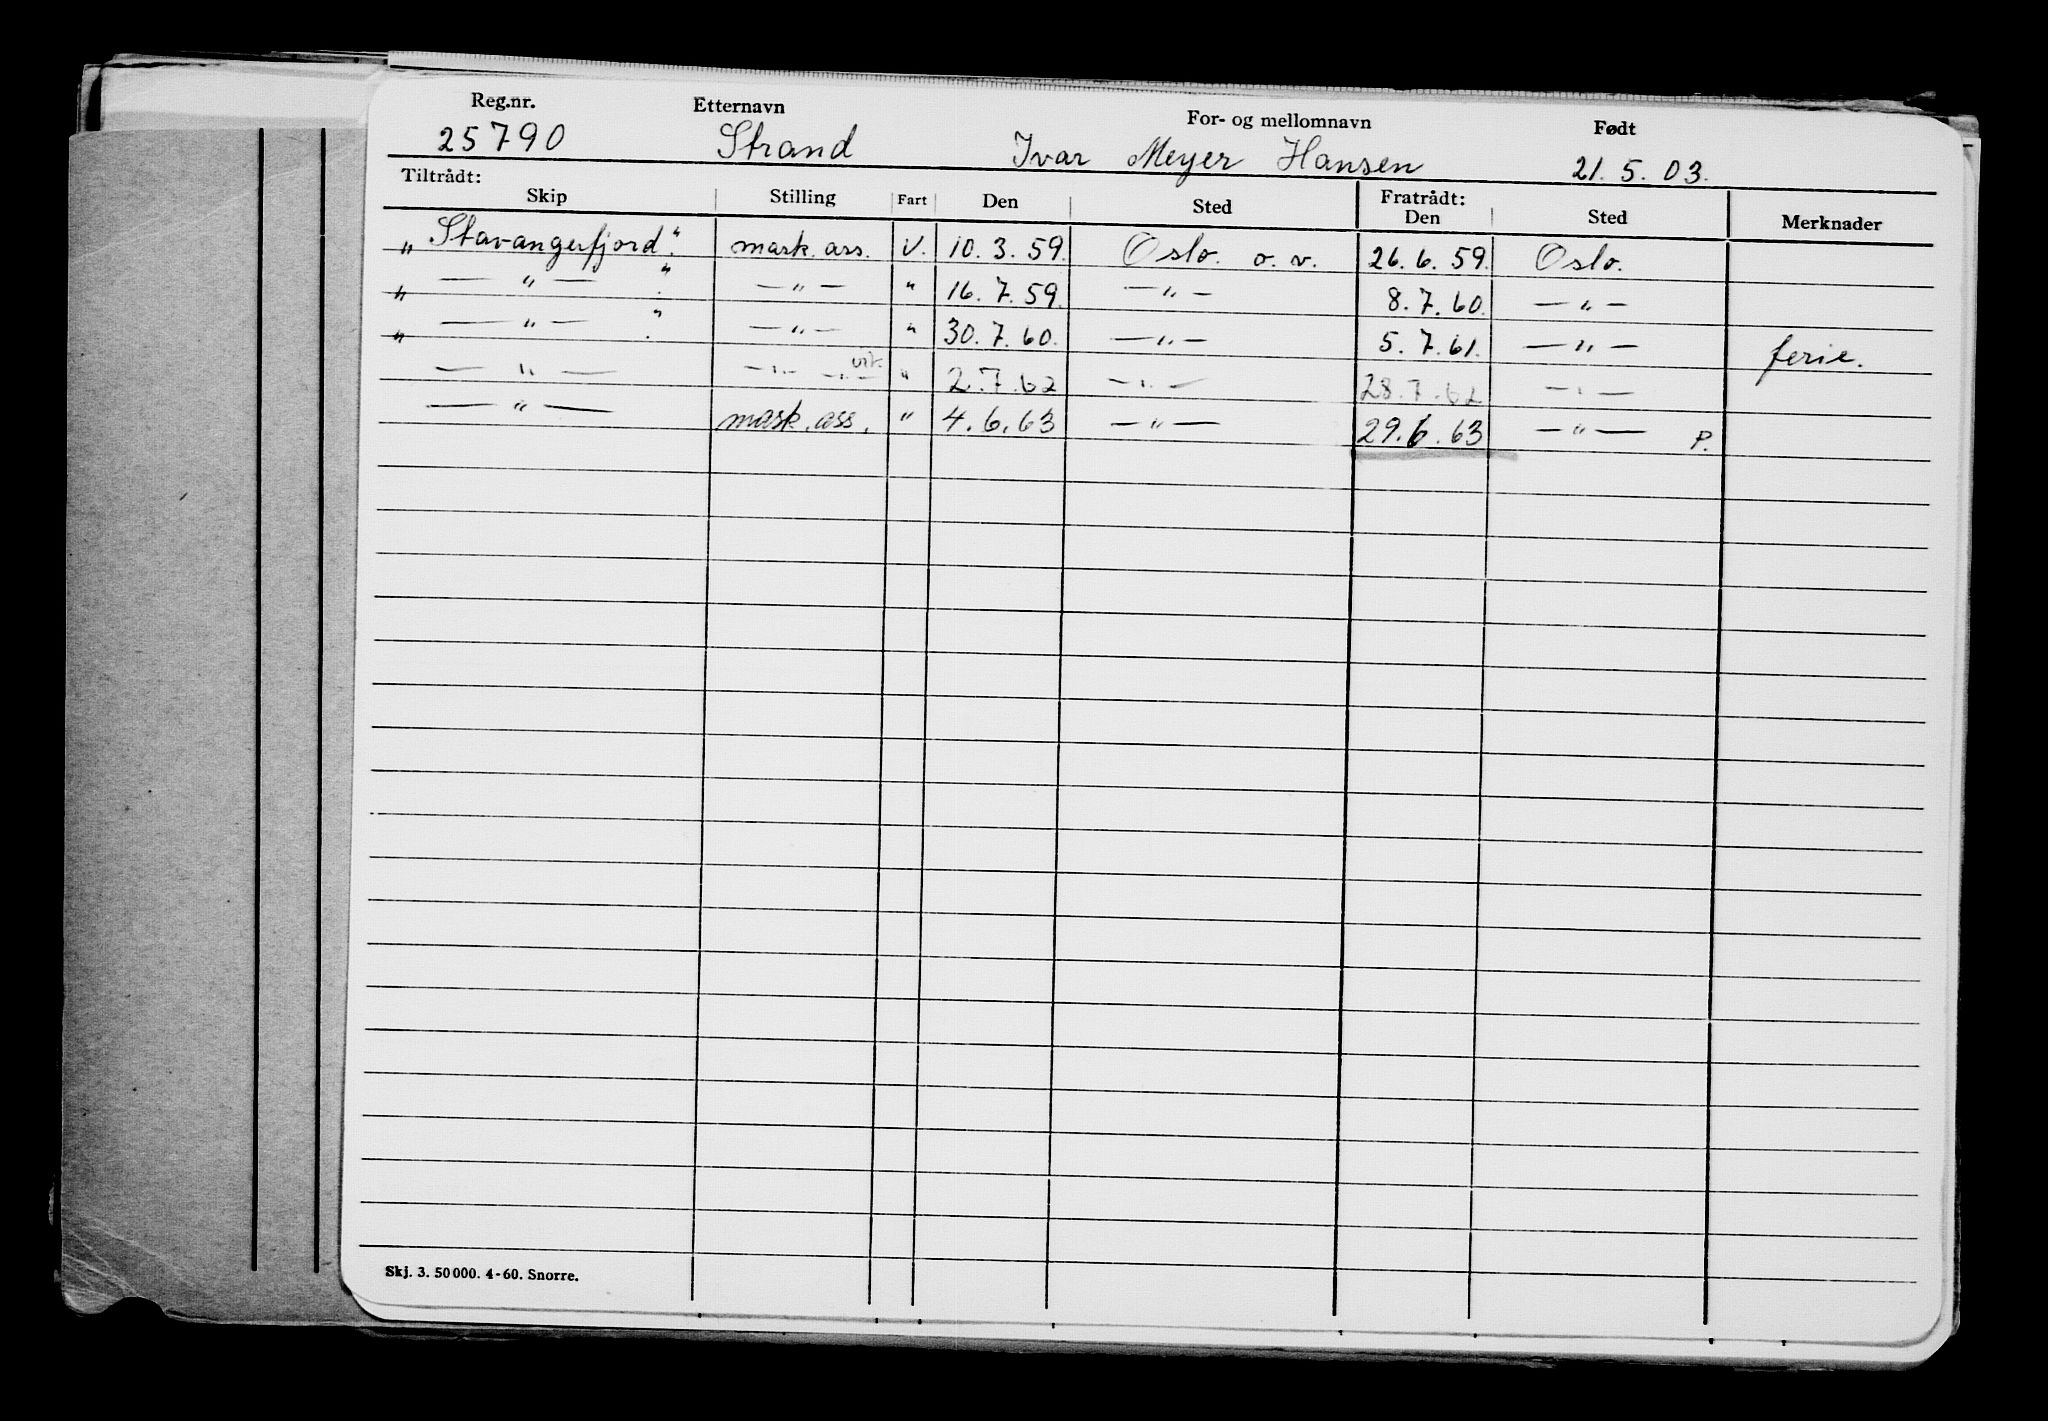 Reg.nr. Etternavn For- og mellomnavn Født
25790 Strand Ivar Meyer Hansen 21.5.03.
Tiltrådt: Fratrådt:
Skip Stilling Fart Den Sted Den Sted Merknader
„Stavangerfjord“. mask. ass. V. 10.3.59. Oslo. o. v. 26.6.59. Oslo.
„ — " — “. — " — " 16.7.59. — " — 8.7.60. — " —
„ — " — “. — " — " 30.7.60. — " — 5.7.61. — " — ferie.
— " — — " — — " — vik. " 2.7.62 — " — 28.7.62 — " —
— " — mask. ass. " 4.6.63 — " — 29.6.63 — " — P.
Skj. 3. 50 000. 4-60. Snorre.